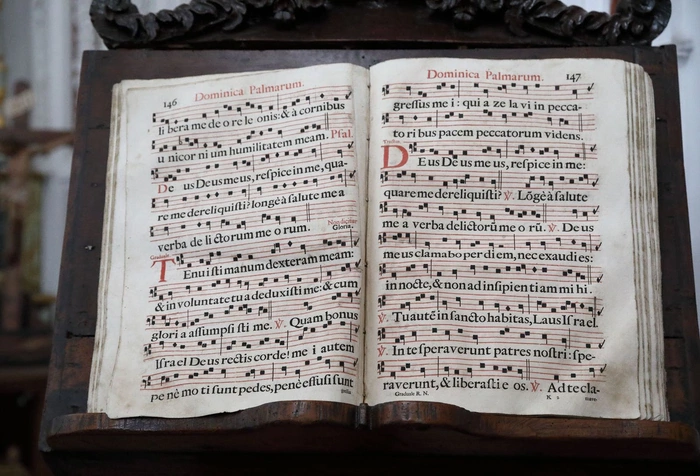 146
Dominica Palmarum.
li bera me de o re le onis: & à cornibus
u nicor ni um humilitatem meam. Psal.
De us Deus meus, respice in me, qua-
re me dereliquisti? longè à salute me a
verba de li ctorum me o rum.
Gloria.
Graduale
Tenui sti manum dexteram meam:
& in voluntate tu a deduxisti me: & cum
glori a assumpsi sti me. ℣. Quam bonus
Israel Deus rectis corde! me i autem
pe nè mo ti sunt pedes, penè effusi sunt
Dominica Palmarum.
147
gressus me i: qui a ze la vi in pecca-
to ri bus pacem peccatorum videns.
DEus Deus me us, respice in me:
quare me dereliquisti? ℣. Lōgè à salute
me a verba delictōrū me o rū. ℣. De us
me us clamabo per di em, nec exaudi es:
in nocte, & non ad insipien ti am mi hi.
℣. Tu autē in sancto habitas, Laus Israel.
℣. In te speraverunt patres nostri: spe-
raverunt, & liberasti e os. ℣. Ad te cla-
Graduale R. N.
K 2